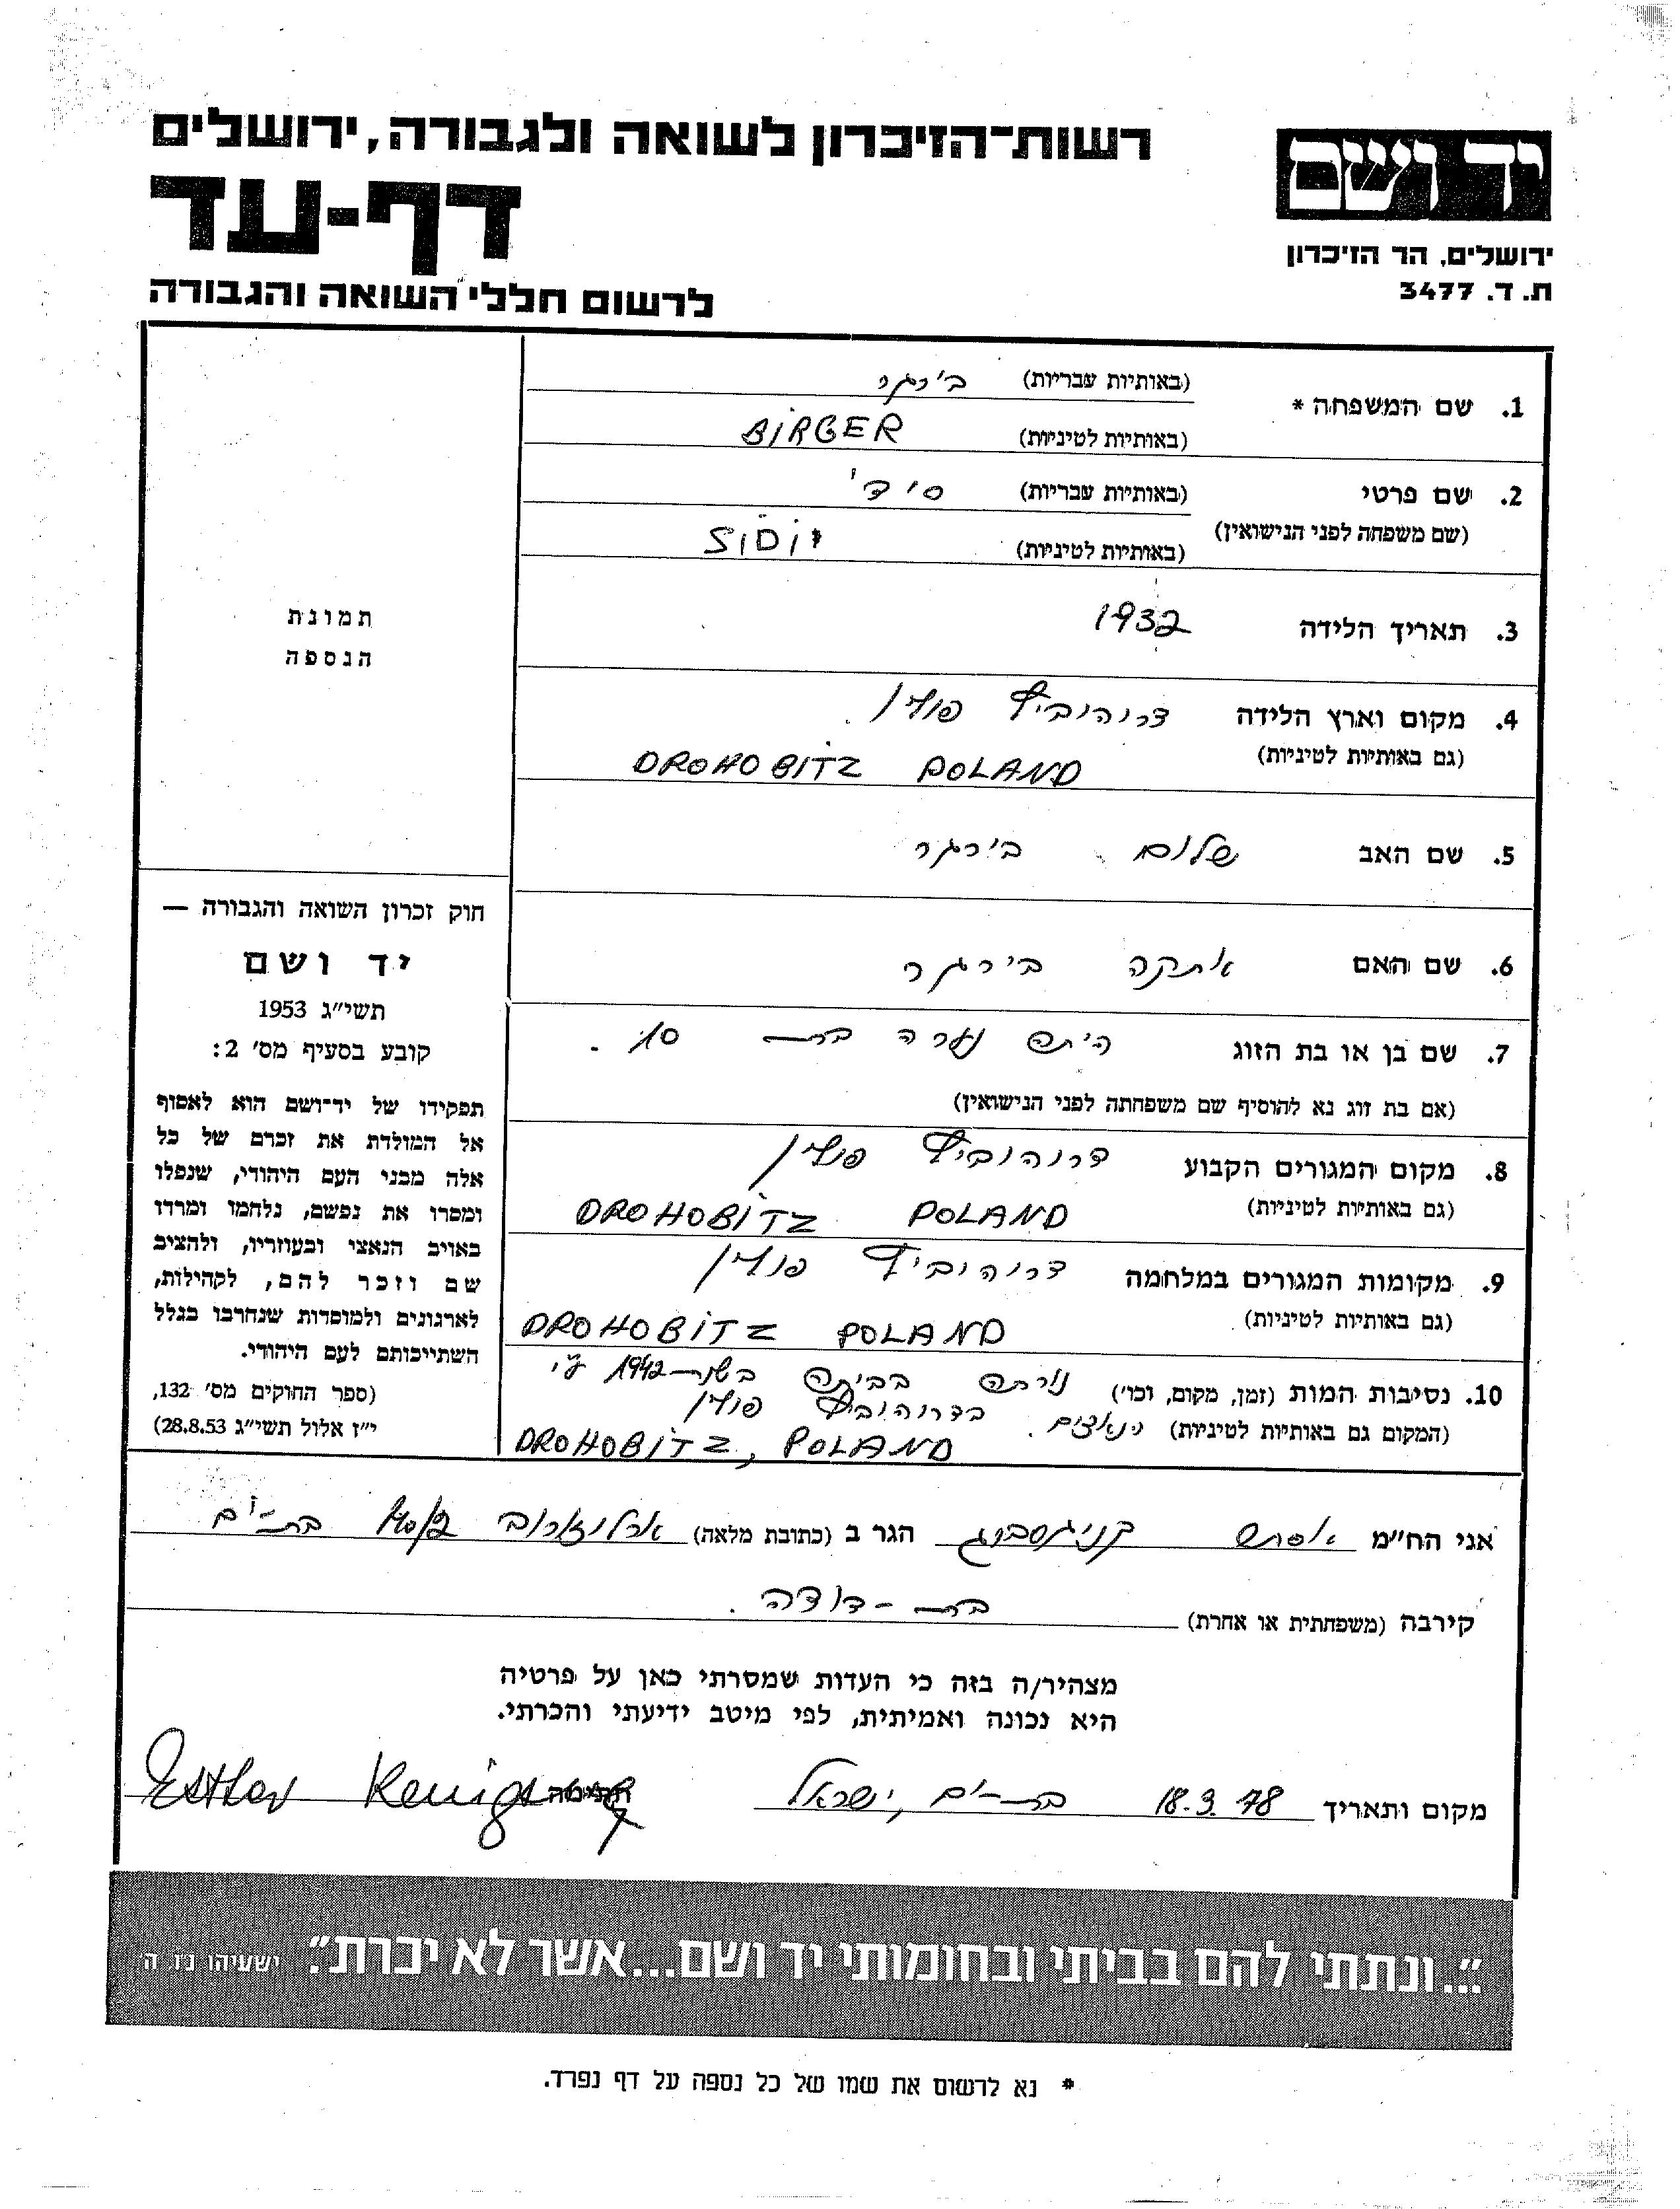 רשות־הזיכרון לשואה ולגבורה, ירושלים
דף-עד
לרשום חללי השואה והגבורה
יד ושם
ירושלים, הר הזיכרון
ת. ד. 3477
1. שם המשפחה * (באותיות עבריות) בירגר
(באותיות לטיניות) BIRGER
2. שם פרטי (באותיות עבריות) סידי
(שם משפחה לפני הנישואין) (באותיות לטיניות) SIDI
3. תאריך הלידה 1932
4. מקום וארץ הלידה דרוהוביץ פולין.
(גם באותיות לטיניות) DROHOBITZ POLAND
5. שם האב שלום בירגר
6. שם האם אתקה בירגר
7. שם בן או בת הזוג היתה נערה בת 10.
(אם בת זוג נא להוסיף שם משפחתה לפני הנישואין)
8. מקום המגורים הקבוע דרוהוביץ פולין
(גם באותיות לטיניות) DROHOBITZ POLAND
9. מקומות המגורים במלחמה דרוהוביץ פולין
(גם באותיות לטיניות) DROHOBITZ POLAND
10. נסיבות המות (זמן, מקום, וכו') נורתה בביתה בשנת 1942 ע"י
(המקום גם באותיות לטיניות) הנאצים. בדרוהוביץ פולין
DROHOBITZ, POLAND
תמונת
הנספה
חוק זכרון השואה והגבורה —
יד ושם
תשי"ג 1953
קובע בסעיף מס' 2:
תפקידו של יד־ושם הוא לאסוף
אל המולדת את זכרם של כל
אלה מבני העם היהודי, שנפלו
ומסרו את נפשם, נלחמו ומרדו
באויב הנאצי ובעוזריו, ולהציב
שם וזכר להם, לקהילות,
לארגונים ולמוסדות שנחרבו בגלל
השתייכותם לעם היהודי.
(ספר החוקים מס' 132,
י"ז אלול תשי"ג 28.8.53)
אני הח"מ אסתר קניגסברג הגר ב (כתובת מלאה) ארלוזורוב בת-ים
קירבה (משפחתית או אחרת) בת-דודה.
מצהיר/ה בזה כי העדות שמסרתי כאן על פרטיה
היא נכונה ואמיתית, לפי מיטב ידיעתי והכרתי.
מקום ותאריך 18.3.78 בת-ים, ישראל חתימה Esther
"...ונתתי להם בביתי ובחומותי יד ושם...אשר לא יכרת." ישעיהו נ"ו, ה'
* נא לרשום את שמו של כל נספה על דף נפרד.